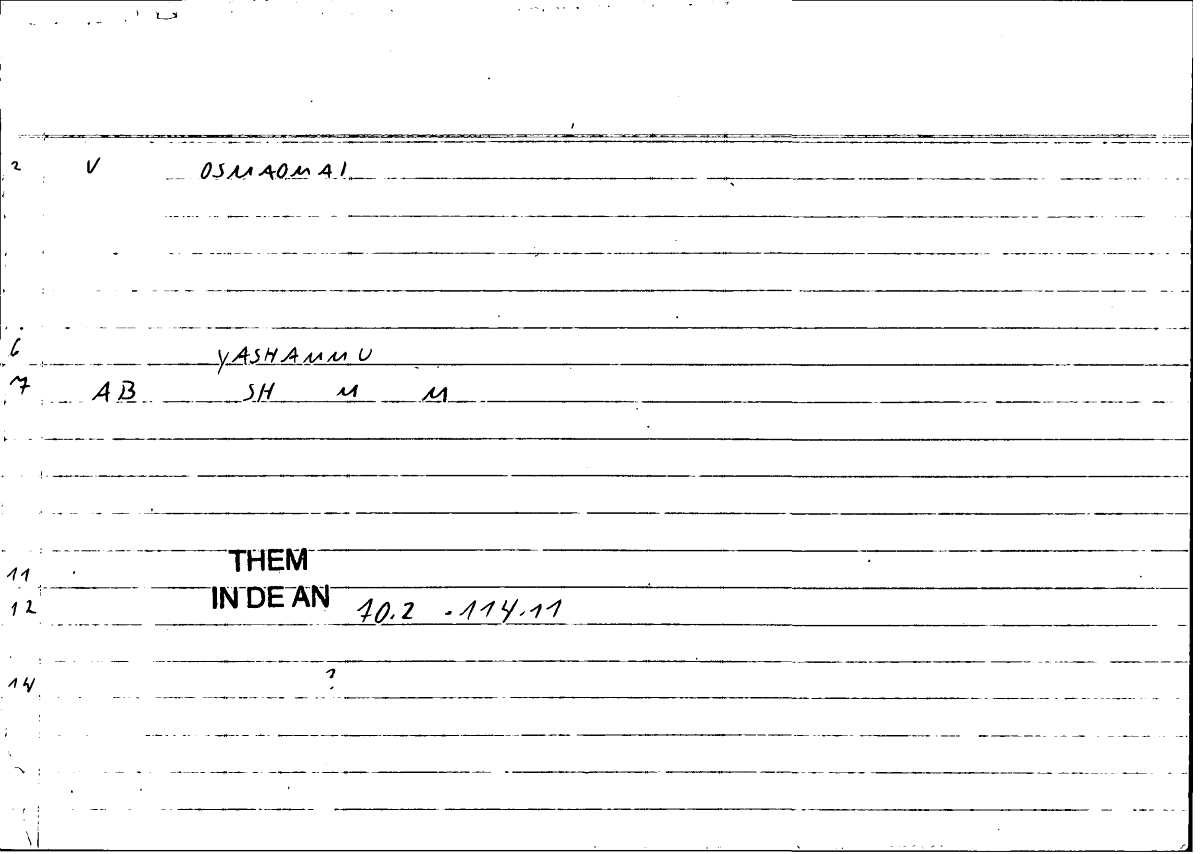 2 V OSMAOMAI
6 YASHAMMU
7 AB SH M M
THEM
11
IN DE AN
12 10.2 -114.11
14 ?